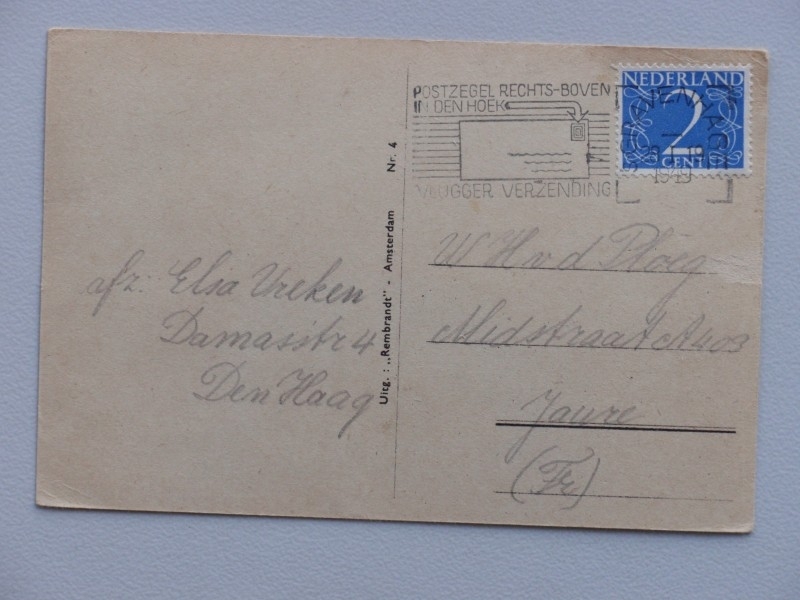 POSTZEGEL RECHTS-BOVEN
IN DEN HOEK
VLUGGER VERZENDING
NEDERLAND
2
CENT
'S-GRAVENHAGE
1949
afz: Elsa Vreken
Damasstr 4
Den Haag
Uitg.: „Rembrandt" - Amsterdam Nr. 4
W H v d Ploeg
Midstraat A403
Joure
(Fr)